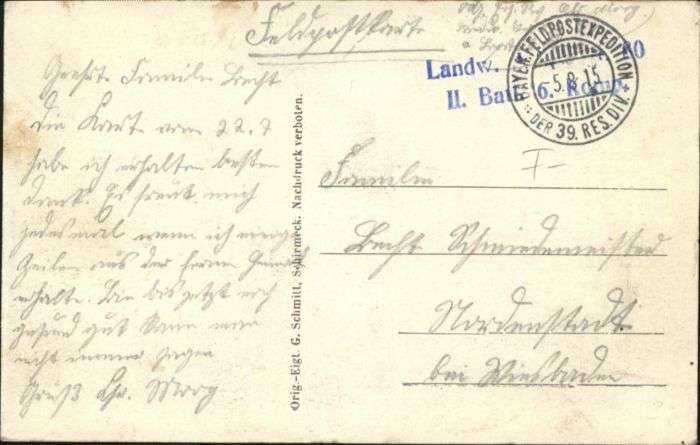 Feldpostkarte
Landw. 80
II. Batl. 6. Komp.
BAYER. FELDPOSTEXPEDITION
-5.8.15
DER 39. RES. DIV.
Geehrte Familie Becht
Die Karte vom 22.7
habe ich erhalten besten
Dank. Es freut mich
jedesmal wenn ich einige
Zeilen aus der fernen Heimat
erhalte. Bin bis jetzt noch
gesund gut kann man
nicht immer sagen
Gruß Chr. Morg
Orig.-Eigt. G. Schmitt, Schirmeck. Nachdruck verboten.
Familie
Becht Schmiedemeister
Nordenstadt
bei Wiesbaden